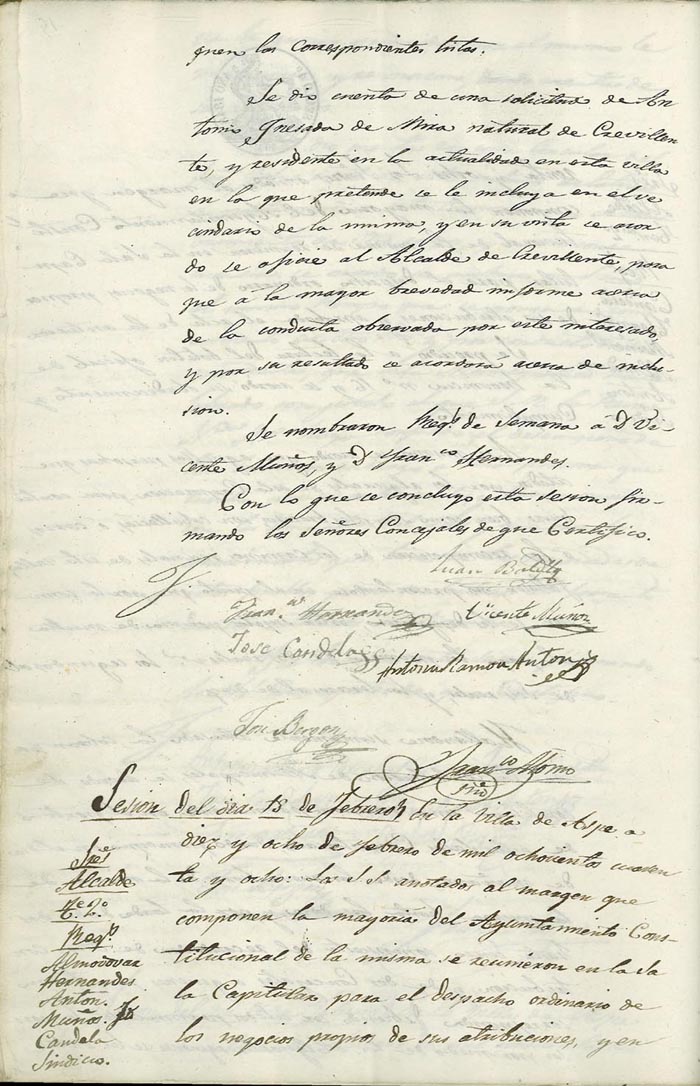 quen los correspondientes listas.
Se dio cuenta de una solicitud de An
tonio Quesada de Mira natural de Crevillen
te, y residente en la actualidad en esta villa
en la que pretende se le incluya en el ve
cindario de la misma, y en su vista se acor
do se oficie al Alcalde de Crevillente, para
que á la mayor brevedad informe acerca
de la conducta observada por este interesado,
y por su resultado se acordorá acerca de inclu-
sion.
Se nombraron Regs. de Semana á D Vi-
cente Muños, y D Franco Hernandes.
Con lo que se concluyo esta sesion fir-
mando los Señores Concejales de que Certifico.
Juan
Franco Hernandez
Vicente Muñoz
Jose Candela
Antonio Ramon Anton
Franco
Srio
Sesion del dia 18 de Febrero
En la Villa de Aspe a
diez y ocho de Febrero de mil ochocientos cuaren
ta y ocho: Los SS. anotados al margen que
componen la mayoria del Ayuntamiento Cons-
titucional de la misma se reunieron en la Sa
la Capitular para el despacho ordinario de
los negocios propios de sus atribuciones, y en
Sres
Alcalde
Te. 2o
Regs
Almodovar
Hernandes
Anton.
Muños.
Candela
Sindico.